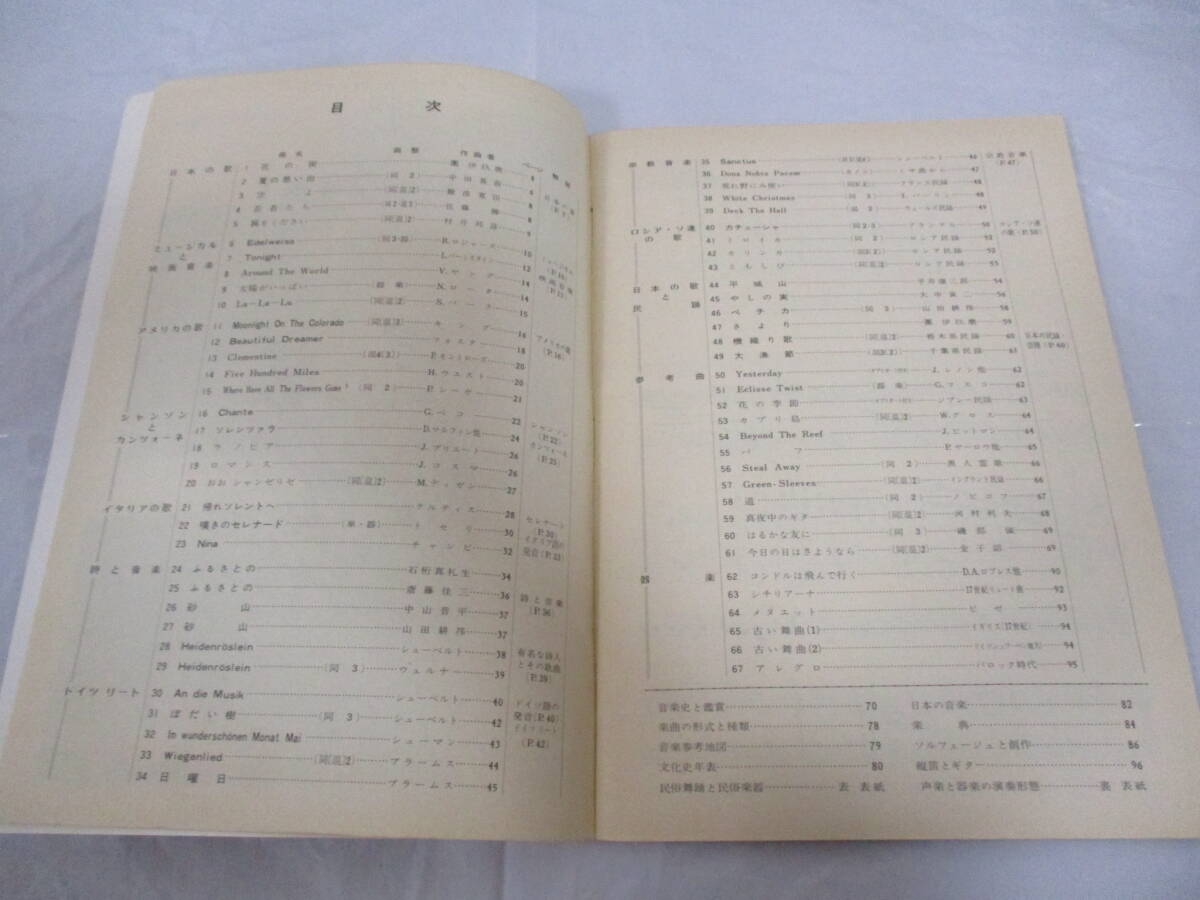 目次
曲名 作曲者 ページ
日本の歌 1 花の街 團伊玖磨
2 夏の思い出 〔同2〕 中田喜直
4 若者たち 佐藤勝
ミュージカルと映画音楽 6 Edelweiss R.ロジャース 10
7 Tonight 12
8 Around The World V.ヤング 14
9 太陽がいっぱい 〔器楽〕 N.ロータ 14
10 La-La-Lu 15
アメリカの歌 11 Moonlight On The Colorado キング 16
12 Beautiful Dreamer フォスター 18
13 Clementine P.モントローズ 20
14 Five Hundred Miles H.ウエスト 20
15 Where Have All The Flowers Gone? 〔同2〕 P.シーガー 21
シャンソンとカンツォーネ 16 Chante G.ベコー 22 シャンソン(P.22)
17 ソレンツァラ D.マルフィジ他 24
18 ラ ノビア J.プリエート 26
19 ロマンス J.コスマ 26
20 おお シャンゼリゼ 〔同[混]2〕 M.ディガン 27
イタリアの歌 21 帰れソレントへ クルティス 28
22 嘆きのセレナード 〔単・器〕 トセリ 30 セレナード(P.30)
23 Nina チャンピ 32 イタリア語の発音(P.33)
詩と音楽 24 ふるさとの 石桁真礼生 34
25 ふるさとの 斎藤佳三 36 詩と音楽(P.36)
26 砂山 中山晋平 37
27 砂山 山田耕筰 37
28 Heidenröslein シューベルト 38 有名な詩人とその歌曲(P.39)
29 Heidenröslein 〔同3〕 ウェルナー 39
ドイツ リート 30 An die Musik シューベルト 40 ドイツ語の発音(P.40)
31 ぼだい樹 〔同3〕 シューベルト 42 ドイツリート(P.42)
32 In wunderschönen Monat Mai シューマン 43
33 Wiegenlied 〔同[混]2〕 ブラームス 44
34 日曜日 ブラームス 45
宗教音楽 35 Sanctus シューベルト 46 宗教音楽(P.47)
36 Dona Nobis Pacem 〔カノン〕 47
37 荒れ野にみ使い フランス民謡 48
38 White Christmas 48
39 Deck The Hall ウェールズ民謡 49
ロシア・ソ連の歌 40 カチューシャ ブランテル 50 ロシア・ソ連の歌(P.50)
41 トロイカ 〔同2〕 ロシア民謡 52
42 カリンカ ロシア民謡 52
43 ともしび 〔同[混]2〕 ロシア民謡 53
日本の歌と民謡 44 平城山 平井康三郎 54
45 やしの実 大中寅二 56
46 ペチカ 〔同3〕 山田耕筰 58
47 さより 團伊玖磨 59
48 機織り歌 〔同[混]2〕 栃木県民謡 60 日本の民謡
49 大漁節 千葉県民謡 61
参考曲 50 Yesterday J.レノン他 62
51 Eclisse Twist 〔器楽〕 G.フスコ 62
52 花の季節 ジプシー民謡 63
53 カプリ島 〔同[混]2〕 W.グロス 64
54 Beyond The Reef J.ピットマン 64
55 パフ P.ヤーロウ他 65
56 Steal Away 〔同2〕 黒人霊歌 66
57 Green-Sleeves 〔同[混]2〕 イングランド民謡 66
58 道 〔同2〕 ノビコフ 67
59 真夜中のギター 〔同[混]2〕 河村利夫 68
60 はるかな友に 〔同3〕 磯部俶 69
61 今日の日はさようなら 〔同[混]2〕 金子詔一 69
器楽 62 コンドルは飛んで行く D.A.ロブレス他 90
63 シチリアーナ 17世紀リュート曲 92
64 メヌエット ビゼー 93
65 古い舞曲(1) イギリス(17世紀) 94
66 古い舞曲(2) 94
67 アレグロ バロック時代 95
音楽史と鑑賞 70 日本の音楽 82
楽曲の形式と種類 78 楽典 84
音楽参考地図 79 ソルフェージュと創作 86
文化史年表 80 縦笛とギター 96
民俗舞踊と民俗楽器 表 表紙 声楽と器楽の演奏形態 裏 表紙